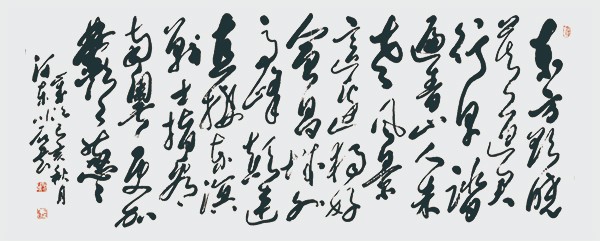 东方欲晓
莫道君
行早踏
遍青山人未
老风景
这边独好
会昌城外
高峰颠连
直接东溟
战士指看
南粤更加
郁郁葱葱
己亥秋月